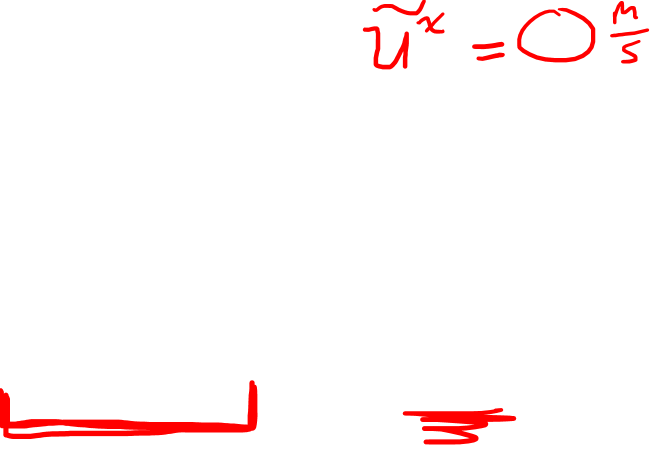 ũˣ = 0 m/s